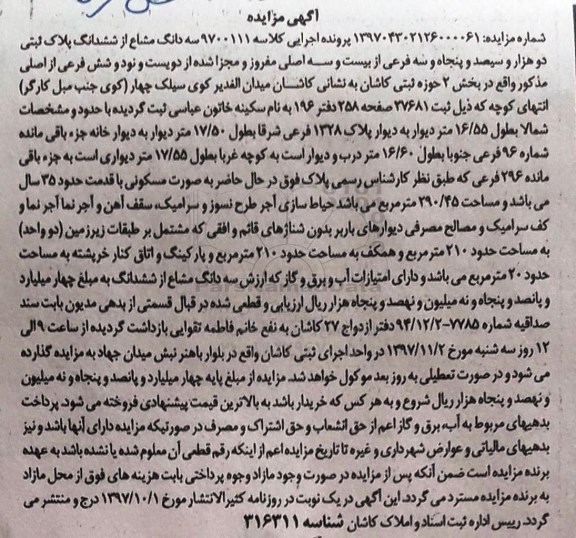 آگهی مزایده
شماره مزایده: ۱۳۹۷۰۴۳۰۲۱۲۶۰۰۰۰۶۱ پرونده اجرایی کلاسه ۹۷۰۰۱۱۱ سه دانگ مشاع از ششدانگ پلاک ثبتی
دو هزار و سیصد و پنجاه و سه فرعی از بیست و ســه اصلی مفروز و مجزا شده از دویست و نود و شش فرعی از اصلی
مذکور واقع در بخش ۲ حوزه ثبتی کاشان به نشانی کاشان میدان الغدیر کوی سیلک چهار (کوی جنب مبل کارگر)
انتهای کوچه که ذیل ثبت ۳۷۶۸۱ صفحه ۲۵۸ دفتر ۱۹۶ به نام سکینه خاتون عباسی ثبت گردیده با حدود و مشخصات
شمالا بطول ۱۶/۵۵ متر دیوار به دیوار پلاک ۱۳۲۸ فرعی شرقا بطول ۱۷/۵۰ متر دیوار به دیوار خانه جزء باقی مانده
شماره ۹۶ فرعی جنوبا بطول ۱۶/۶۰ متر درب و دیوار است به کوچه غربا بطول ۱۷/۵۵ متر دیواری است به جزء باقی
مانده ۲۹۶ فرعی که طبق نظر کارشناس رسمی پلاک فوق در حال حاضر به صورت مسکونی با قدمت حدود ۳۵ سال
می باشد و مساحت ۲۹۰/۴۵ مترمربع می باشد حیاط سازی آجر طرح نسوز و سرامیک، سقف آهن و آجر نما آجر نما و
کف سرامیک و مصالح مصرفی دیوارهای باربر بدون شناژهای قائم و افقی که مشتمل بر طبقات زیرزمین (دو واحد)
به مساحت حدود ۲۱۰ متر مربع و همکف به مساحت حدود ۲۱۰ مترمربع و پارکینگ و اتاق کنار خرپشته به مساحت
حدود ۲۰ مترمربع می باشد و دارای امتیازات آب و برق و گاز که ارزش سه دانگ مشاع از ششدانگ به مبلغ چهار میلیارد
و پانصد و پنجاه و نه میلیون و نهصد و پنجاه هزار ریال ارزیابی و قطعی شده در قبال قسمتی از بدهی مدیون بابت سند
صداقیه شماره ۷۷۸۵-۹۴/۱۲/۲ دفتر ازدواج ۲۷ کاشان به نفع خانم فاطمه تقوایی بازداشت گردیده از ساعت ۹ الی
۱۲ روز سه شنبه مورخ ۱۳۹۷/۱۱/۲ در واحد اجرای ثبتی کاشان واقع در بلوار باهنر نبش میدان جهاد به مزایده گذارده
می شود و در صورت تعطیلی به روز بعد موکول خواهد شد. مزایده از مبلغ پایه چهار میلیارد و پانصد و پنجاه و نه میلیون
و نهصد و پنجاه هزار ریال شروع و به هر کس که خریدار باشد به بالاترین قیمت پیشنهادی فروخته می شود. پرداخت
بدهیهای مربوط به آب، برق و گاز اعم از حق انشعاب و حق اشتراک و مصرف در صورتیکه مزایده دارای آنها باشد و نیز
بدهیهای مالیاتی و عوارض شهرداری و غیره تا تاریخ مزایده اعم از اینکه رقم قطعی آن معلوم شده یا نشده باشد به عهده
برنده مزایده است ضمن آنکه پس از مزایده در صورت وجود مازاد وجوه پرداختی بابت هزینه های فوق از محل مازاد
به برنده مزایده مسترد می گردد. این آگهی در یک نوبت در روزنامه کثیرالانتشار مورخ ۱۳۹۷/۱۰/۱ درج و منتشر می
گردد. رییس اداره ثبت اسناد و املاک کاشان شناسه ۳۱۶۳۱۱